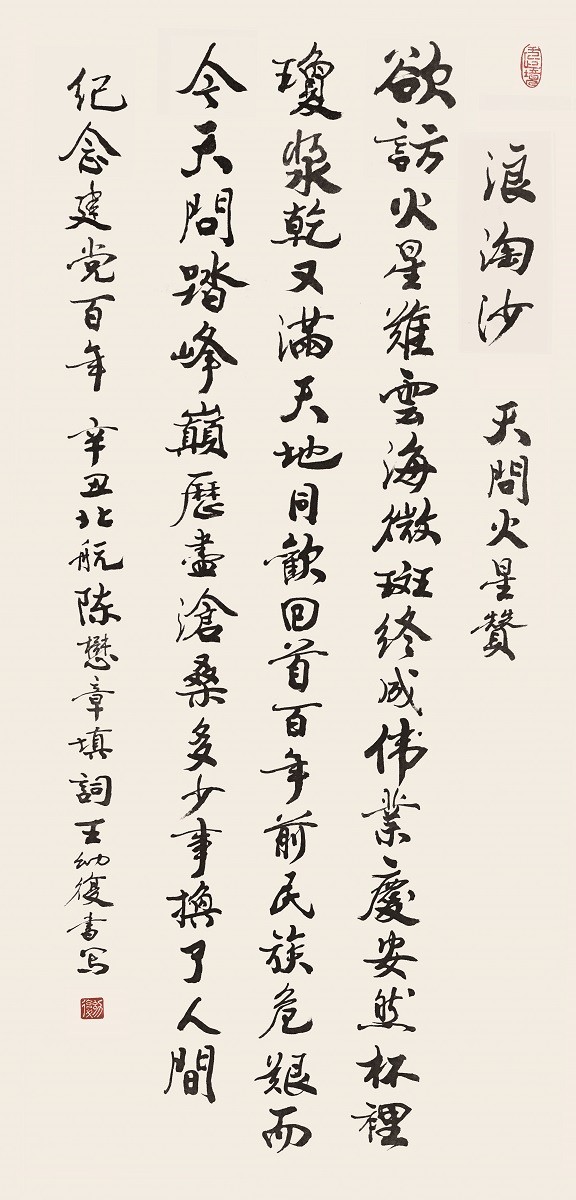 浪淘沙 天問火星贊
欲訪火星難雲海微斑終成伟業慶安然杯裡
瓊漿乾又滿天地同歡回首百年前民族危艱而
今天問踏峰巔歷盡滄桑多少事換了人間
纪念建党百年 辛丑北航陈懋章填詞王幼復書写